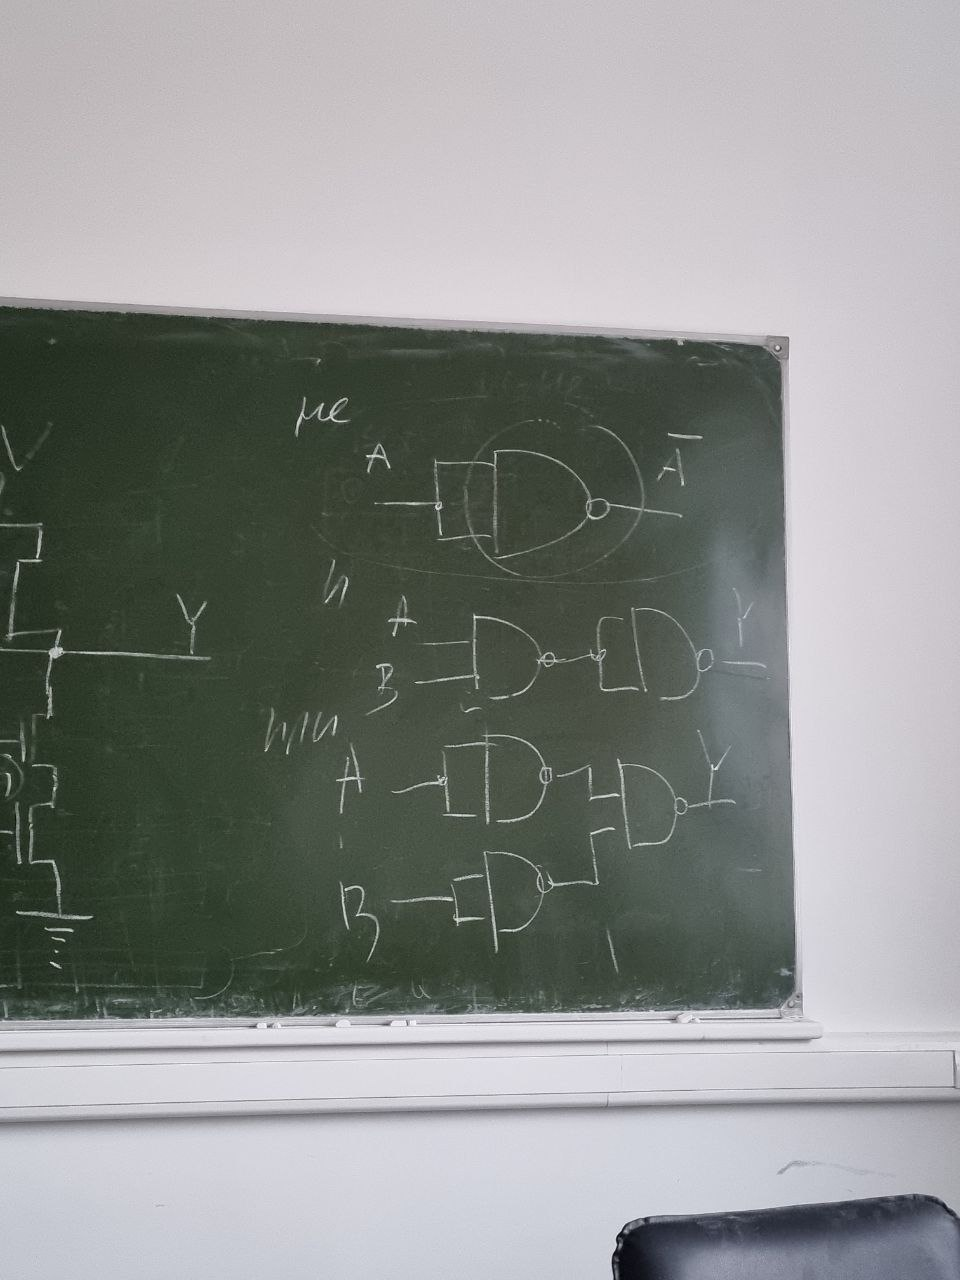 V
Y
не
A
A̅
и
A
B
Y
или
A
B
Y